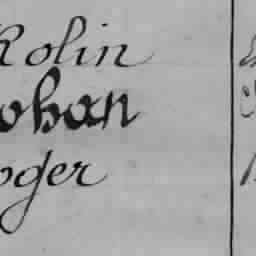 Rolin
ohan
oger